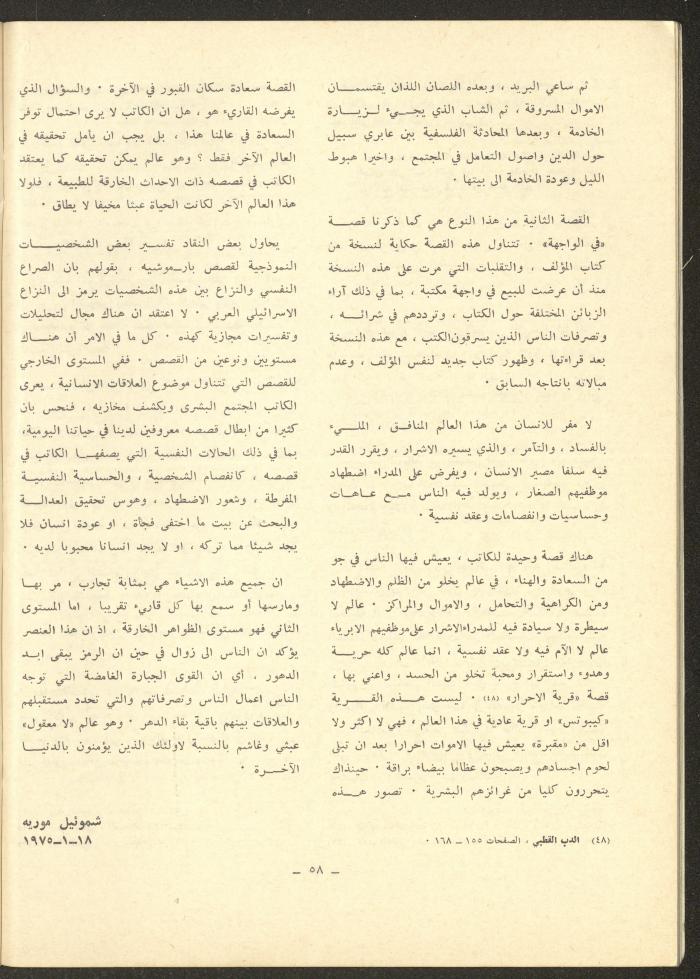 ثم ساعي البريد ، وبعده اللصان اللذان يقتسمــــان
الاموال المسروقة ، ثم الشاب الذي يجــيء لــزيــارة
الخادمة ، وبعدها المحادثة الفلسفية بين عابري سبيل
حول الدين واصول التعامل في المجتمع ، واخيرا هبوط
الليل وعودة الخادمة الى بيتها ٠
القصة الثانية من هذا النوع هي كما ذكرنا قصــة
«في الواجهة» ٠ تتناول هذه القصة حكاية لنسخة من
كتاب المؤلف ، والتقلبات التي مرت على هذه النسخة
منذ أن عرضت للبيع في واجهة مكتبة ، بما في ذلك آراء
الزبائن المختلفة حول الكتاب ، وترددهم في شرائــه ،
وتصرفات الناس الذين يسرقون الكتب ، مع هذه النسخة
بعد قراءتها ، وظهور كتاب جديد لنفس المؤلف ، وعدم
مبالاته بانتاجه السابق ٠
لا مفر للانسان من هذا العالم المنافــق ، الملــيء
بالفساد ، والتآمر ، والذي يسيره الاشرار ، ويقرر القدر
فيه سلفا مصير الانسان ، ويفرض على المدراء اضطهاد
موظفيهم الصغار ، ويولد فيه الناس مــع عــاهــات
وحساسيات وانفصامات وعقد نفسية ٠
هناك قصة وحيدة للكاتب ، يعيش فيها الناس في جو
من السعادة والهناء ، في عالم يخلو من الظلم والاضطهاد
ومن الكراهية والتحامل ، والاموال والمراكز ٠ عالم لا
سيطرة ولا سيادة فيه للمدراء الاشرار على موظفيهم الابرياء
عالم لا آلام فيه ولا عقد نفسية ، انما عالم كله حريــة
وهدوء واستقرار ومحبة تخلو من الحسد ، واعني بها ،
قصة «قرية الاحرار» (٤٨) ٠ ليست هــذه القــريــة
«كيبوتس» او قرية عادية في هذا العالم ، فهي لا اكثر ولا
اقل من «مقبرة» يعيش فيها الاموات احرارا بعد ان تبلى
لحوم اجسادهم ويصبحون عظاما بيضاء براقة ٠ حينذاك
يتحررون كليا من غرائزهم البشرية ٠ تصور هــذه
(٤٨) الدب القطبي ، الصفحات ١٥٥ ــ ١٦٨ ٠
القصة سعادة سكان القبور في الآخرة ٠ والسؤال الذي
يفرضه القاريء هو ، هل ان الكاتب لا يرى احتمال توفر
السعادة في عالمنا هذا ، بل يجب ان يأمل تحقيقه في
العالم الآخر فقط ؟ وهو عالم يمكن تحقيقه كما يعتقد
الكاتب في قصصه ذات الاحداث الخارقة للطبيعة ، فلولا
هذا العالم الآخر لكانت الحياة عبثا مخيفا لا يطاق ٠
يحاول بعض النقاد تفسيــر بعض الشخصيــــات
النموذجية لقصص بارــموشيه ، بقولهم بان الصراع
النفسي والنزاع بين هذه الشخصيات يرمز الى النزاع
الاسرائيلي العربي ٠ لا اعتقد ان هناك مجال لتحليلات
وتفسيرات مجازية كهذه ٠ كل ما في الامر أن هنــاك
مستويين ونوعين من القصص ٠ ففي المستوى الخارجي
للقصص التي تتناول موضوع العلاقات الانسانية ، يعرى
الكاتب المجتمع البشرى ويكشف مخازيه ، فنحس بان
كثيرا من ابطال قصصه معروفين لدينا في حياتنا اليومية،
بما في ذلك الحالات النفسية التي يصفهــا الكاتب في
قصصه ، كانفصام الشخصية ، والحساسية النفسيــة
المفرطة ، وشعور الاضطهاد ، وهوس تحقيق العدالــة
والبحث عن بيت ما اختفى فجأة ، او عودة انسان فلا
يجد شيئا مما تركه ، او لا يجد انسانا محبوبا لديه ٠
ان جميع هذه الاشياء هي بمثابة تجارب ، مر بهــا
ومارسها أو سمع بها كل قاريء تقريبا ، اما المستوى
الثاني فهو مستوى الظواهر الخارقة ، اذ ان هذا العنصر
يؤكد ان الناس الى زوال في حين ان الرمز يبقى ابــد
الدهور ، أي ان القوى الجبارة الغامضة التي توجه
الناس اعمال الناس وتصرفاتهم والتي تحدد مستقبلهم
والعلاقات بينهم باقية بقاء الدهر ٠ وهو عالم «لا معقول»
عبثي وغاشم بالنسبة لاولئك الذين يؤمنون بالدنيــا
الآخــرة ٠
شموئيل موريه
١٨ــ١ــ١٩٧٥
ــ ٥٨ ــ